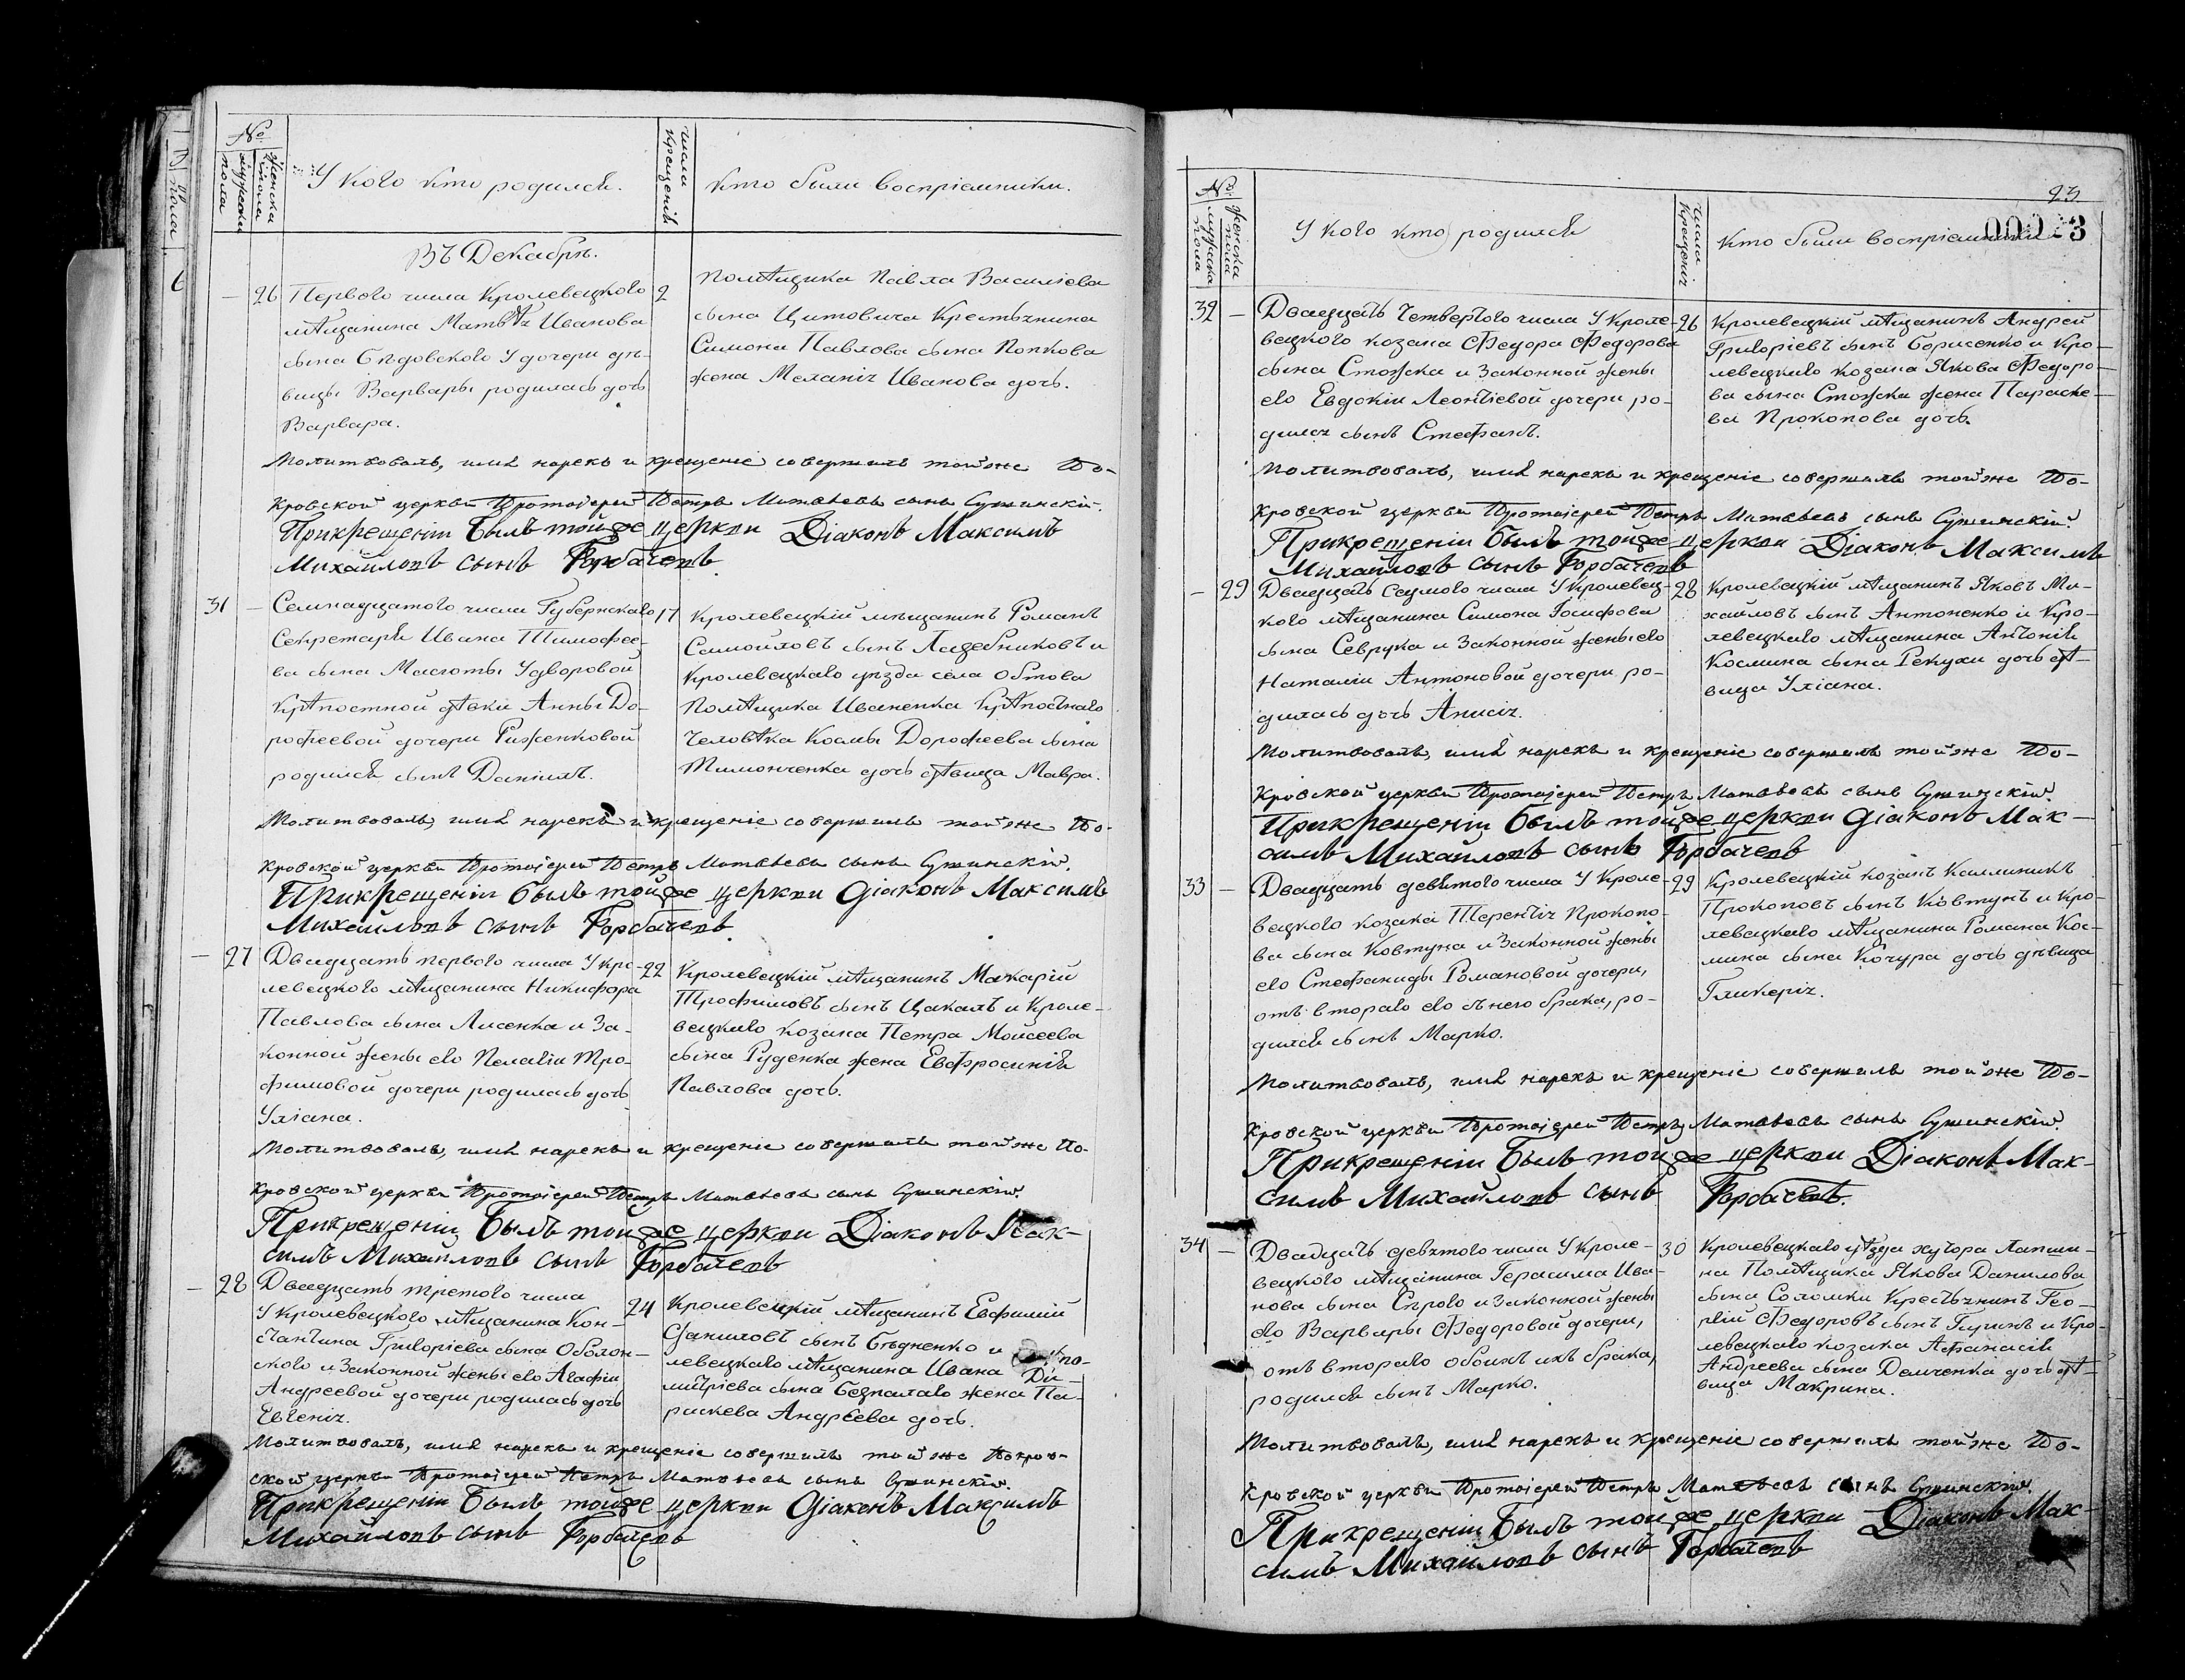 №
мужеска пола
женска пола
У кого кто родился.
числа крещенія
кто были воспріемники.
Въ Декабрѣ.
— 26
Первого числа Кролевецкого
мѣщанина Матвѣя Иванова
сына Сѣдовского У дочери дѣ-
вицы Варвары родилась дочь
Варвара.
2
Помѣщика Павла Василіева
сына Цитовича Крестьянина
Симона Павлова сына Попкова
жена Меланія Иванова дочь.
Молитвовалъ, имя нарекъ и крещеніе совершилъ тойже По-
кровской церкви Протоіерей Петръ Матвѣевъ сынъ Сушинскій.
Прикрещеніи былъ тойже церкви Діаконъ Максимъ
Михайловъ сынъ Горбачевъ
31 —
Семнадцатого числа Губернскаго
Секретаря Ивана Тимофее-
ва сына Маслоты У дворовой
Крѣпостной дѣвки Анны До-
рофеевой дочери Риженковой
родился сынъ Даніилъ.
17
Кролевецкій мѣщанинъ Романъ
Самойловъ сынъ Лазебниковъ и
Кролевецкаго уѣзда села Обтова
Помѣщика Иваненка Крѣпостнаго
Человѣка Космы Дорофеева сына
Тимонченка дочь дѣвица Мавра.
Молитвовалъ, имя нарекъ и крещеніе совершилъ тойже По-
кровской церкви Протоіерей Петръ Матвѣевъ сынъ Сушинскій.
Прикрещеніи былъ тойже церкви Діаконъ Максимъ
Михайловъ сынъ Горбачевъ.
— 27
Двадцать первого числа У кро-
левецкого мѣщанина Никифора
Павлова сына Лисенка и За-
конной жены его Пелагіи Тро-
фимовой дочери родилась дочь
Уліана.
22
Кролевецкій мѣщанинъ Макарій
Трофимовъ сынъ Цакалъ и Кроле-
вецкаго козака Петра Моисеева
сына Руденка жена Евфросинія
Павлова дочь.
Молитвовалъ, имя нарекъ и крещеніе совершилъ тойже По-
кровской церкви Протоіерей Петръ Матвѣевъ сынъ Сушинскій.
Прикрещеніи былъ тойже церкви Діаконъ Мак-
симъ Михайловъ сынъ Горбачевъ
— 28
Двадцать третого числа
У Кролевецкого мѣщанина Кон-
стантина Григоріева сына Оболон-
ского и Законной жены его Агафіи
Андреевой дочери родилась дочь
Евгенія.
24
Кролевецкій мѣщанинъ Евфимій
Даниловъ сынъ Бѣдненко и Кро-
левецкаго мѣщанина Ивана Ди-
митріева сына Безпалаго жена Па-
раскева Андреева дочь.
Молитвовалъ, имя нарекъ и крещеніе совершилъ тойже Покров-
ской церкви Протоіерей Петръ Матвѣевъ сынъ Сушинскій.
Прикрещеніи былъ тойже церкви Діаконъ Максимъ
Михайловъ сынъ Горбачевъ
23
№
мужеска пола
женска пола
У кого кто родился
числа крещенія
кто были воспріемники
32 —
Двадцать Четвертого числа У Кроле-
вецкого козака Федора Федорова
сына Стожка и Законной жены
его Евдокіи Леонтіевой дочери ро-
дился сынъ Стефанъ.
26
Кролевецкій мѣщанинъ Андрей
Григоріевъ сынъ Борисенко и Кро-
левецкаго козака Якова Федоро-
ва сына Стожка жена Параске-
ва Прокопова дочь.
Молитвовалъ, имя нарекъ и крещеніе совершилъ тойже По-
кровской церкви Протоіерей Петръ Матвѣевъ сынъ Сушинскій.
Прикрещеніи былъ тойже церкви Діаконъ Максимъ
Михайловъ сынъ Горбачевъ
— 29
Двадцать седмого числа У Кролевец-
кого мѣщанина Симона Іосифова
сына Севрука и Законной жены его
Наталіи Антоновой дочери ро-
дилась дочь Анисія.
28
Кролевецкій мѣщанинъ Яковъ Ми-
хайловъ сынъ Антоненко и Кро-
левецкаго мѣщанина Антонія
Космина сына Рекухи дочь дѣ-
вица Уліана.
Молитвовалъ, имя нарекъ и крещеніе совершилъ тойже По-
кровской церкви Протоіерей Петръ Матвѣевъ сынъ Сушинскій.
Прикрещеніи былъ тойже церкви Діаконъ Мак-
симъ Михайловъ сынъ Горбачевъ
33 —
Двадцать девятого числа У Кроле-
вецкого козака Терентія Прокопо-
ва сына Ковтуна и Законной жены
его Стефаниды Романовой дочери,
отъ втораго его съ нею брака, ро-
дился сынъ Марко.
29
Кролевецкій козакъ Каллиникъ
Прокоповъ сынъ Ковтунъ и Кро-
левецкаго мѣщанина Романа Кос-
мина сына Кочура дочь дѣвица
Гликерія.
Молитвовалъ, имя нарекъ и крещеніе совершилъ тойже По-
кровской церкви Протоіерей Петръ Матвѣевъ сынъ Сушинскій.
Прикрещеніи былъ тойже церкви Діаконъ Мак-
симъ Михайловъ сынъ Горбачевъ.
34 —
Двадцать девятого числа У Кроле-
вецкого мѣщанина Герасима Ива-
нова сына Сѣрого и Законной жены
его Варвары Федоровой дочери,
отъ втораго обоихъ ихъ брака,
родился сынъ Марко.
30
Кролевецкаго уѣзда хутора Лапши-
на Помѣщика Якова Данилова
сына Соломки Крестьянинъ Гео-
ргій Федоровъ сынъ Гиринъ и Кро-
левецкаго козака Афанасія
Андреева сына Демченка дочь дѣ-
вица Макрина.
Молитвовалъ, имя нарекъ и крещеніе совершилъ тойже По-
кровской церкви Протоіерей Петръ Матвѣевъ сынъ Сушинскій.
Прикрещеніи былъ тойже церкви Діаконъ Мак-
симъ Михайловъ сынъ Горбачевъ